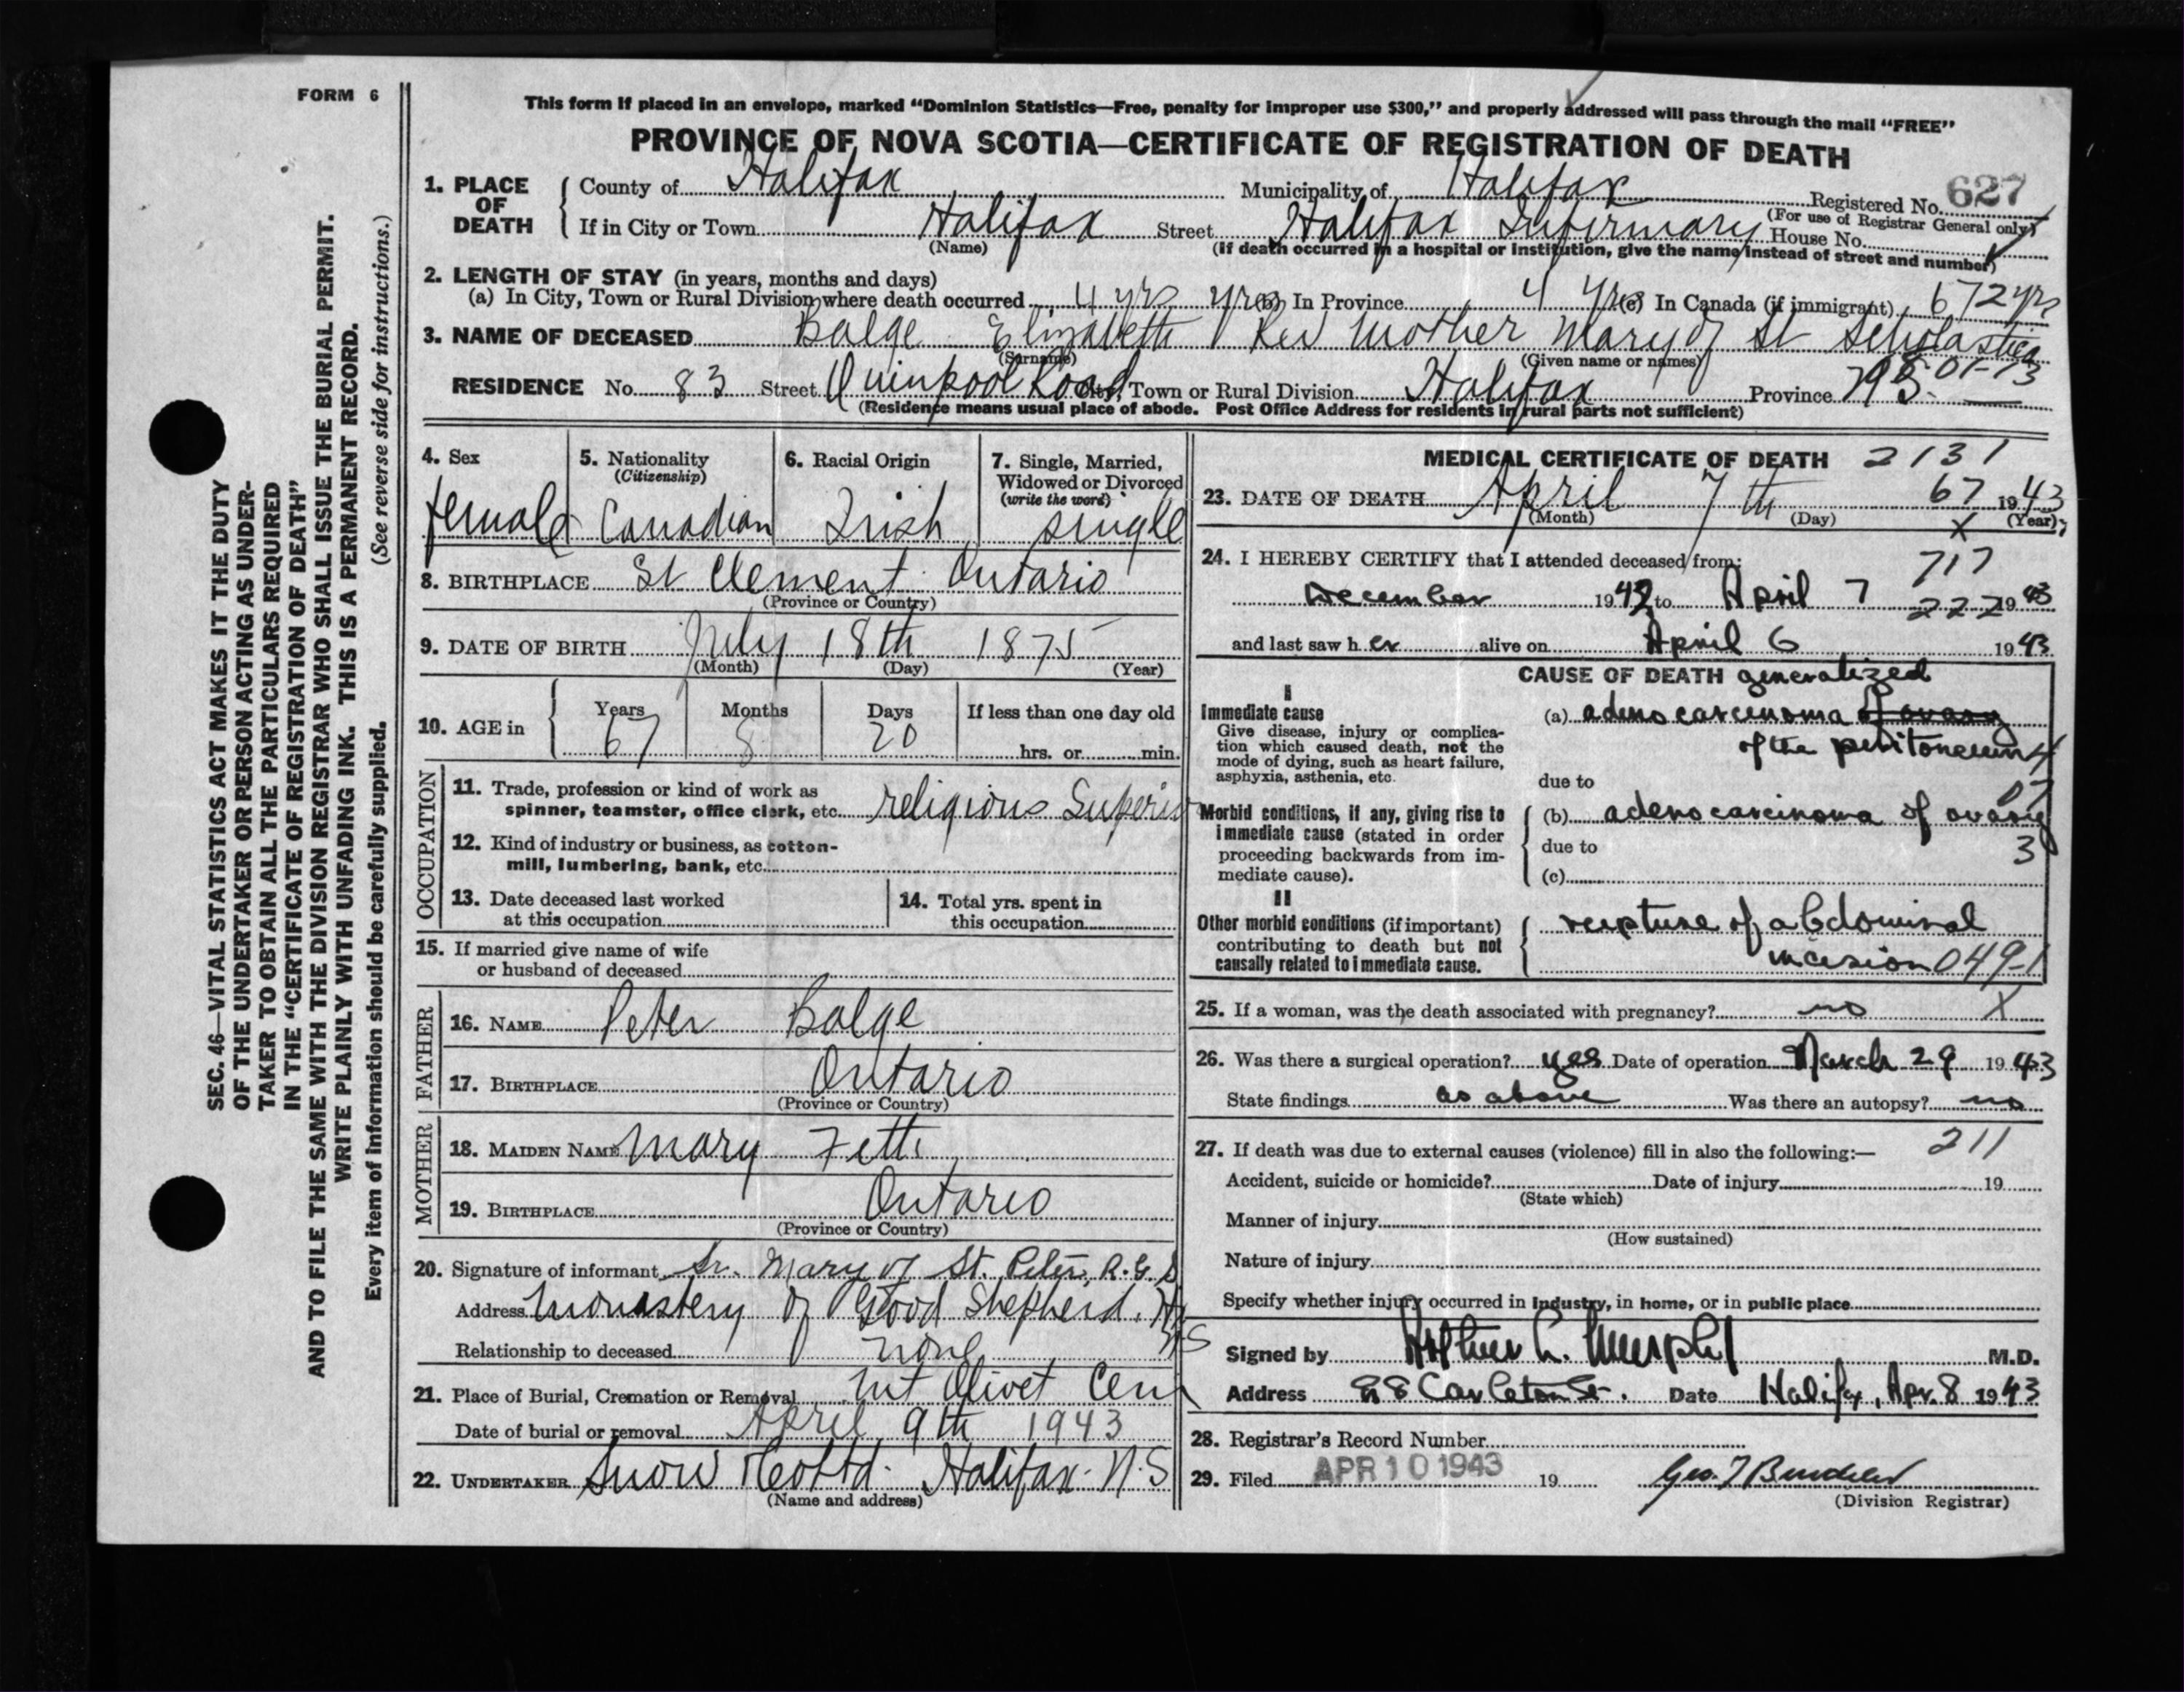 FORM 6
This form if placed in an envelope, marked “Dominion Statistics—Free, penalty for improper use $300,” and properly addressed will pass through the mail “FREE”
PROVINCE OF NOVA SCOTIA—CERTIFICATE OF REGISTRATION OF DEATH
1. PLACE OF DEATH County of Halifax Municipality of Halifax Registered No. 627
(For use of Registrar General only)
If in City or Town Halifax Street Halifax Infirmary House No.
(Name) (if death occurred in a hospital or institution, give the name instead of street and number)
2. LENGTH OF STAY (in years, months and days)
(a) In City, Town or Rural Division where death occurred 4 yrs yrs (b) In Province 4 yrs (c) In Canada (if immigrant) 672 yrs
3. NAME OF DECEASED Balge Elizabeth Rev Mother Mary of St Scholastica
(Surname) (Given name or names)
RESIDENCE No. 83 Street Quinpool Road City, Town or Rural Division Halifax Province N.S. 01-13
(Residence means usual place of abode. Post Office Address for residents in rural parts not sufficient)
4. Sex female
5. Nationality (Citizenship) Canadian
6. Racial Origin Irish
7. Single, Married, Widowed or Divorced (write the word) single
8. BIRTHPLACE St Clement Ontario
(Province or Country)
9. DATE OF BIRTH July 18th 1875
(Month) (Day) (Year)
10. AGE in Years 67 Months 8 Days 20 If less than one day old
hrs. or min.
OCCUPATION
11. Trade, profession or kind of work as
spinner, teamster, office clerk, etc. religious Superior
12. Kind of industry or business, as cotton-
mill, lumbering, bank, etc.
13. Date deceased last worked
at this occupation
14. Total yrs. spent in
this occupation
15. If married give name of wife
or husband of deceased
FATHER
16. NAME Peter Balge
17. BIRTHPLACE Ontario
(Province or Country)
MOTHER
18. MAIDEN NAME Mary
19. BIRTHPLACE Ontario
(Province or Country)
20. Signature of informant Sr. Mary of St. Peter, R.G.S
Address Monastery of Good Shepherd, Hx
NS
Relationship to deceased none
21. Place of Burial, Cremation or Removal Mt Olivet Cem
Date of burial or removal April 9th 1943
22. UNDERTAKER Snow & Co Ltd. Halifax. N.S
(Name and address)
MEDICAL CERTIFICATE OF DEATH 2131
23. DATE OF DEATH April 7th 67 1943
(Month) (Day) X (Year);
24. I HEREBY CERTIFY that I attended deceased from: 717
December 1942 to April 7 222 1943
and last saw her alive on April 6 1943
CAUSE OF DEATH generalized
I
Immediate cause (a) adeno carcinoma of ovary
Give disease, injury or complica-
tion which caused death, not the
mode of dying, such as heart failure,
asphyxia, asthenia, etc.
of the peritoneum 4
due to 07
Morbid conditions, if any, giving rise to
immediate cause (stated in order
proceeding backwards from im-
mediate cause).
(b) adenocarcinoma of ovary
due to 3
(c)
II
Other morbid conditions (if important)
contributing to death but not
causally related to immediate cause.
rupture of abdominal
incision 049-1
25. If a woman, was the death associated with pregnancy? no X
26. Was there a surgical operation? yes Date of operation March 29 1943
State findings as above Was there an autopsy? no
27. If death was due to external causes (violence) fill in also the following:— 211
Accident, suicide or homicide? Date of injury 19
(State which)
Manner of injury
(How sustained)
Nature of injury
Specify whether injury occurred in industry, in home, or in public place
Signed by Arthur L. Murphy M.D.
Address 28 Carleton St. Date Halifax, Apr. 8 1943
28. Registrar's Record Number
29. Filed APR 10 1943 19
(Division Registrar)
SEC. 46—VITAL STATISTICS ACT MAKES IT THE DUTY
OF THE UNDERTAKER OR PERSON ACTING AS UNDER-
TAKER TO OBTAIN ALL THE PARTICULARS REQUIRED
IN THE “CERTIFICATE OF REGISTRATION OF DEATH”
AND TO FILE THE SAME WITH THE DIVISION REGISTRAR WHO SHALL ISSUE THE BURIAL PERMIT.
WRITE PLAINLY WITH UNFADING INK. THIS IS A PERMANENT RECORD.
Every item of information should be carefully supplied. (See reverse side for instructions.)